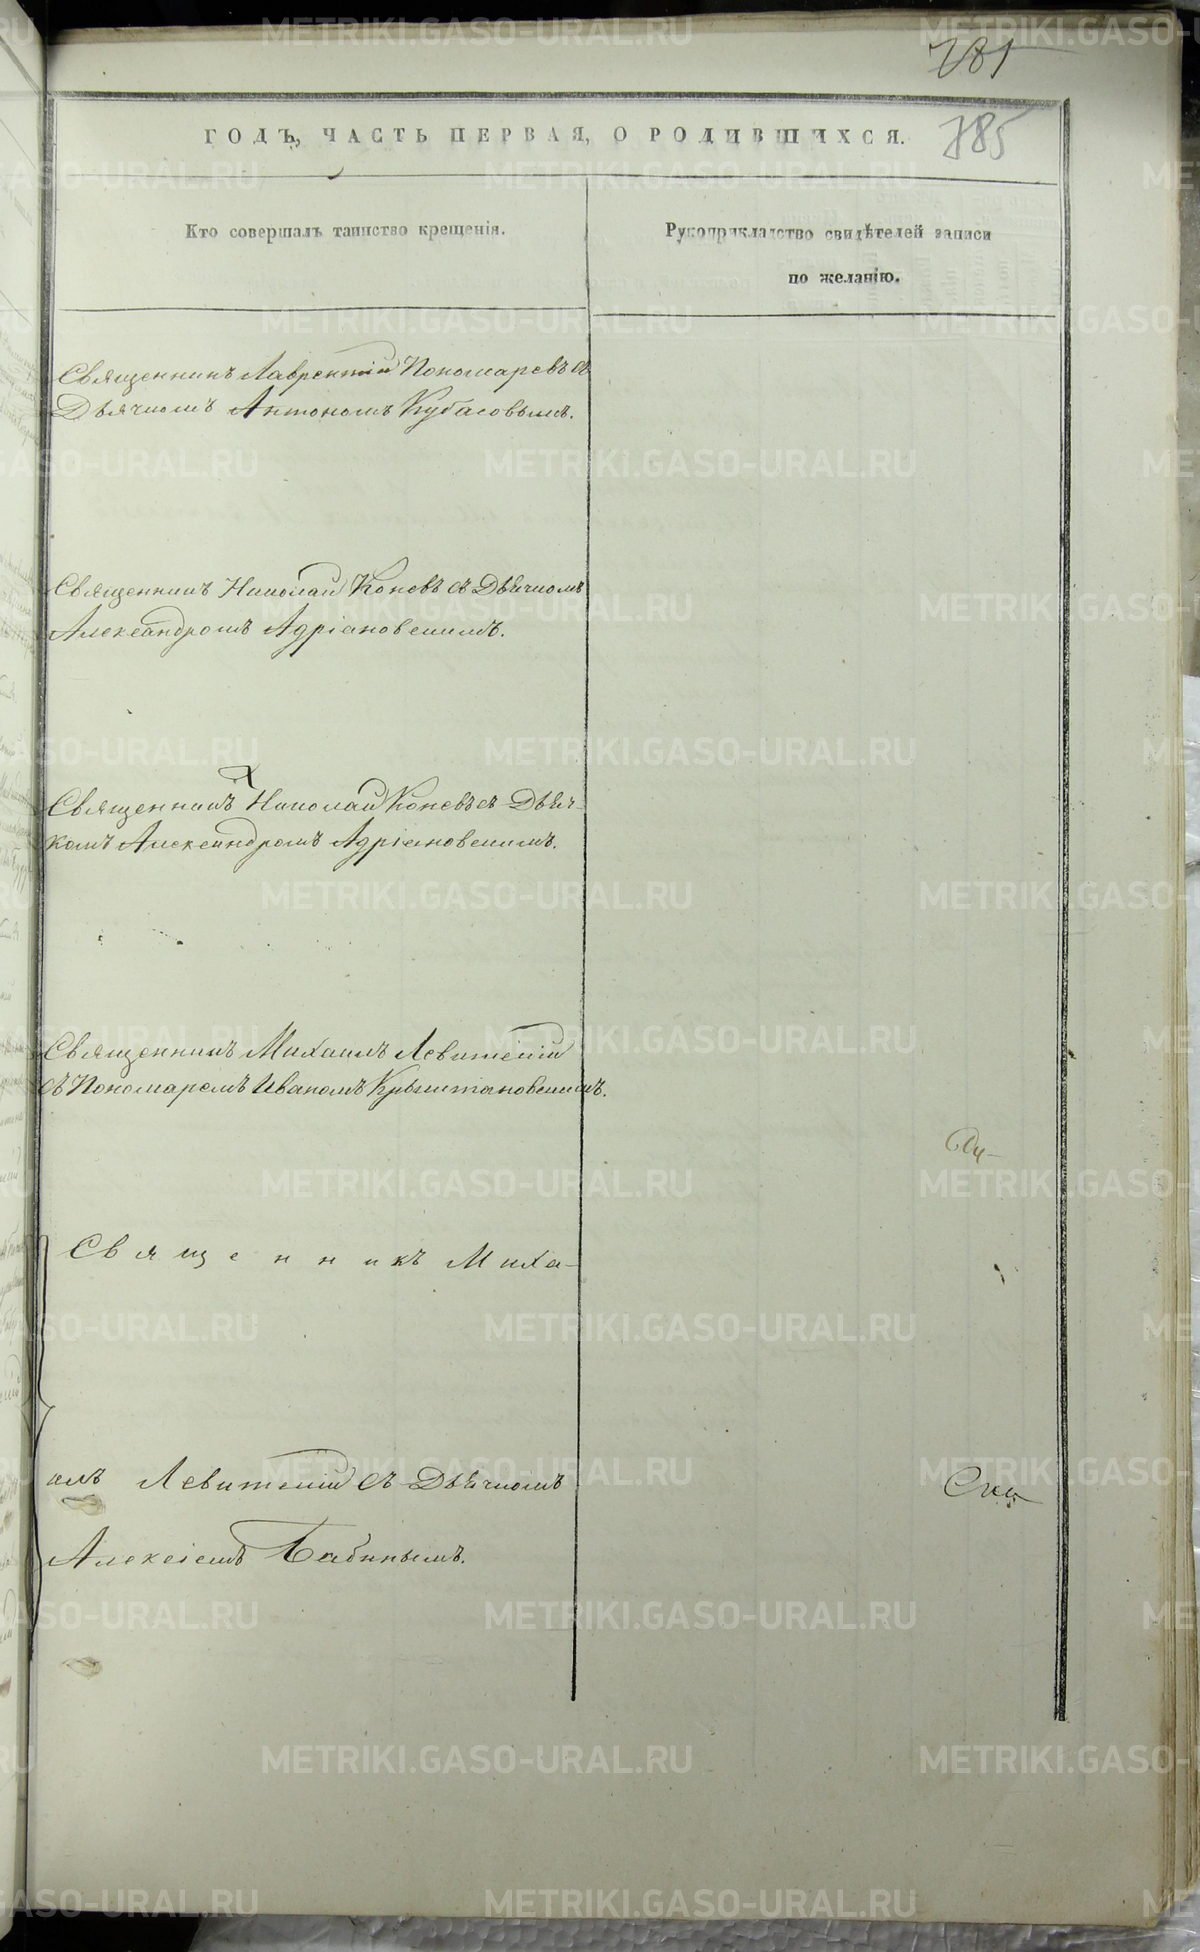 781
785
ГОДЪ, ЧАСТЬ ПЕРВАЯ, О РОДИВШИХСЯ.
Кто совершалъ таинство крещенія.
Рукоприкладство свидѣтелей записи
по желанію.
Священникъ Лаврентій Пономаревъ съ
Дьячкомъ Антономъ Кубасовымъ.
Священникъ Николай Коневъ съ Дьячкомъ
Александромъ Адріановскимъ.
Священникъ Николай Коневъ съ Дьяч-
комъ Александромъ Адріановскимъ.
Священникъ Михаилъ Левитскій
съ Пономаремъ Иваномъ Крыштановскимъ.
Священникъ Миха-
илъ Левитскій съ Дьячкомъ
Алексіемъ Бабинымъ.
METRIKI.GASO-URAL.RU